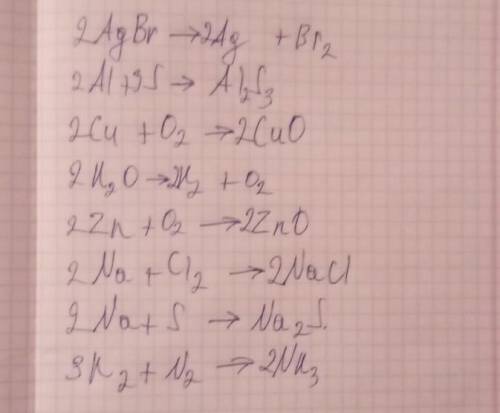 2AgBr → 2Ag + Br₂
2Al + 3S → Al₂S₃
2Cu + O₂ → 2CuO
2H₂O → 2H₂ + O₂
2Zn + O₂ → 2ZnO
2Na + Cl₂ → 2NaCl
2Na + S → Na₂S.
3H₂ + N₂ → 2NH₃